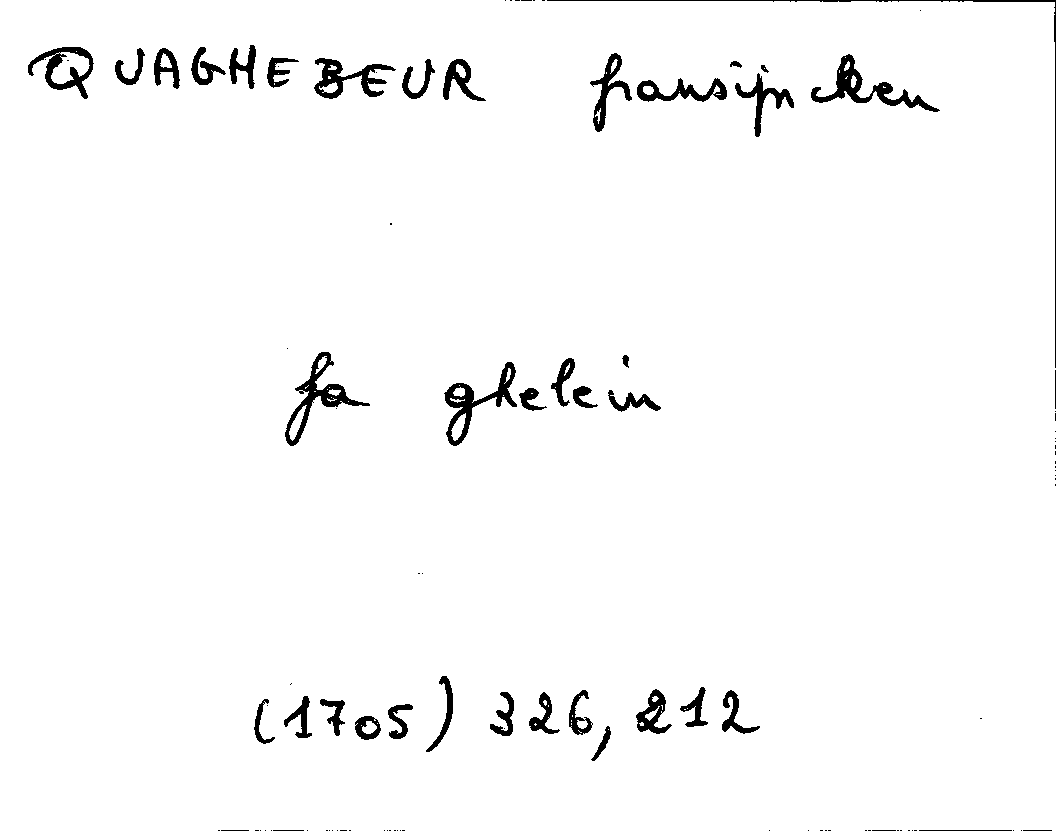 QUAGHEBEUR fransijncken
fa ghelein
(1705) 326, 212